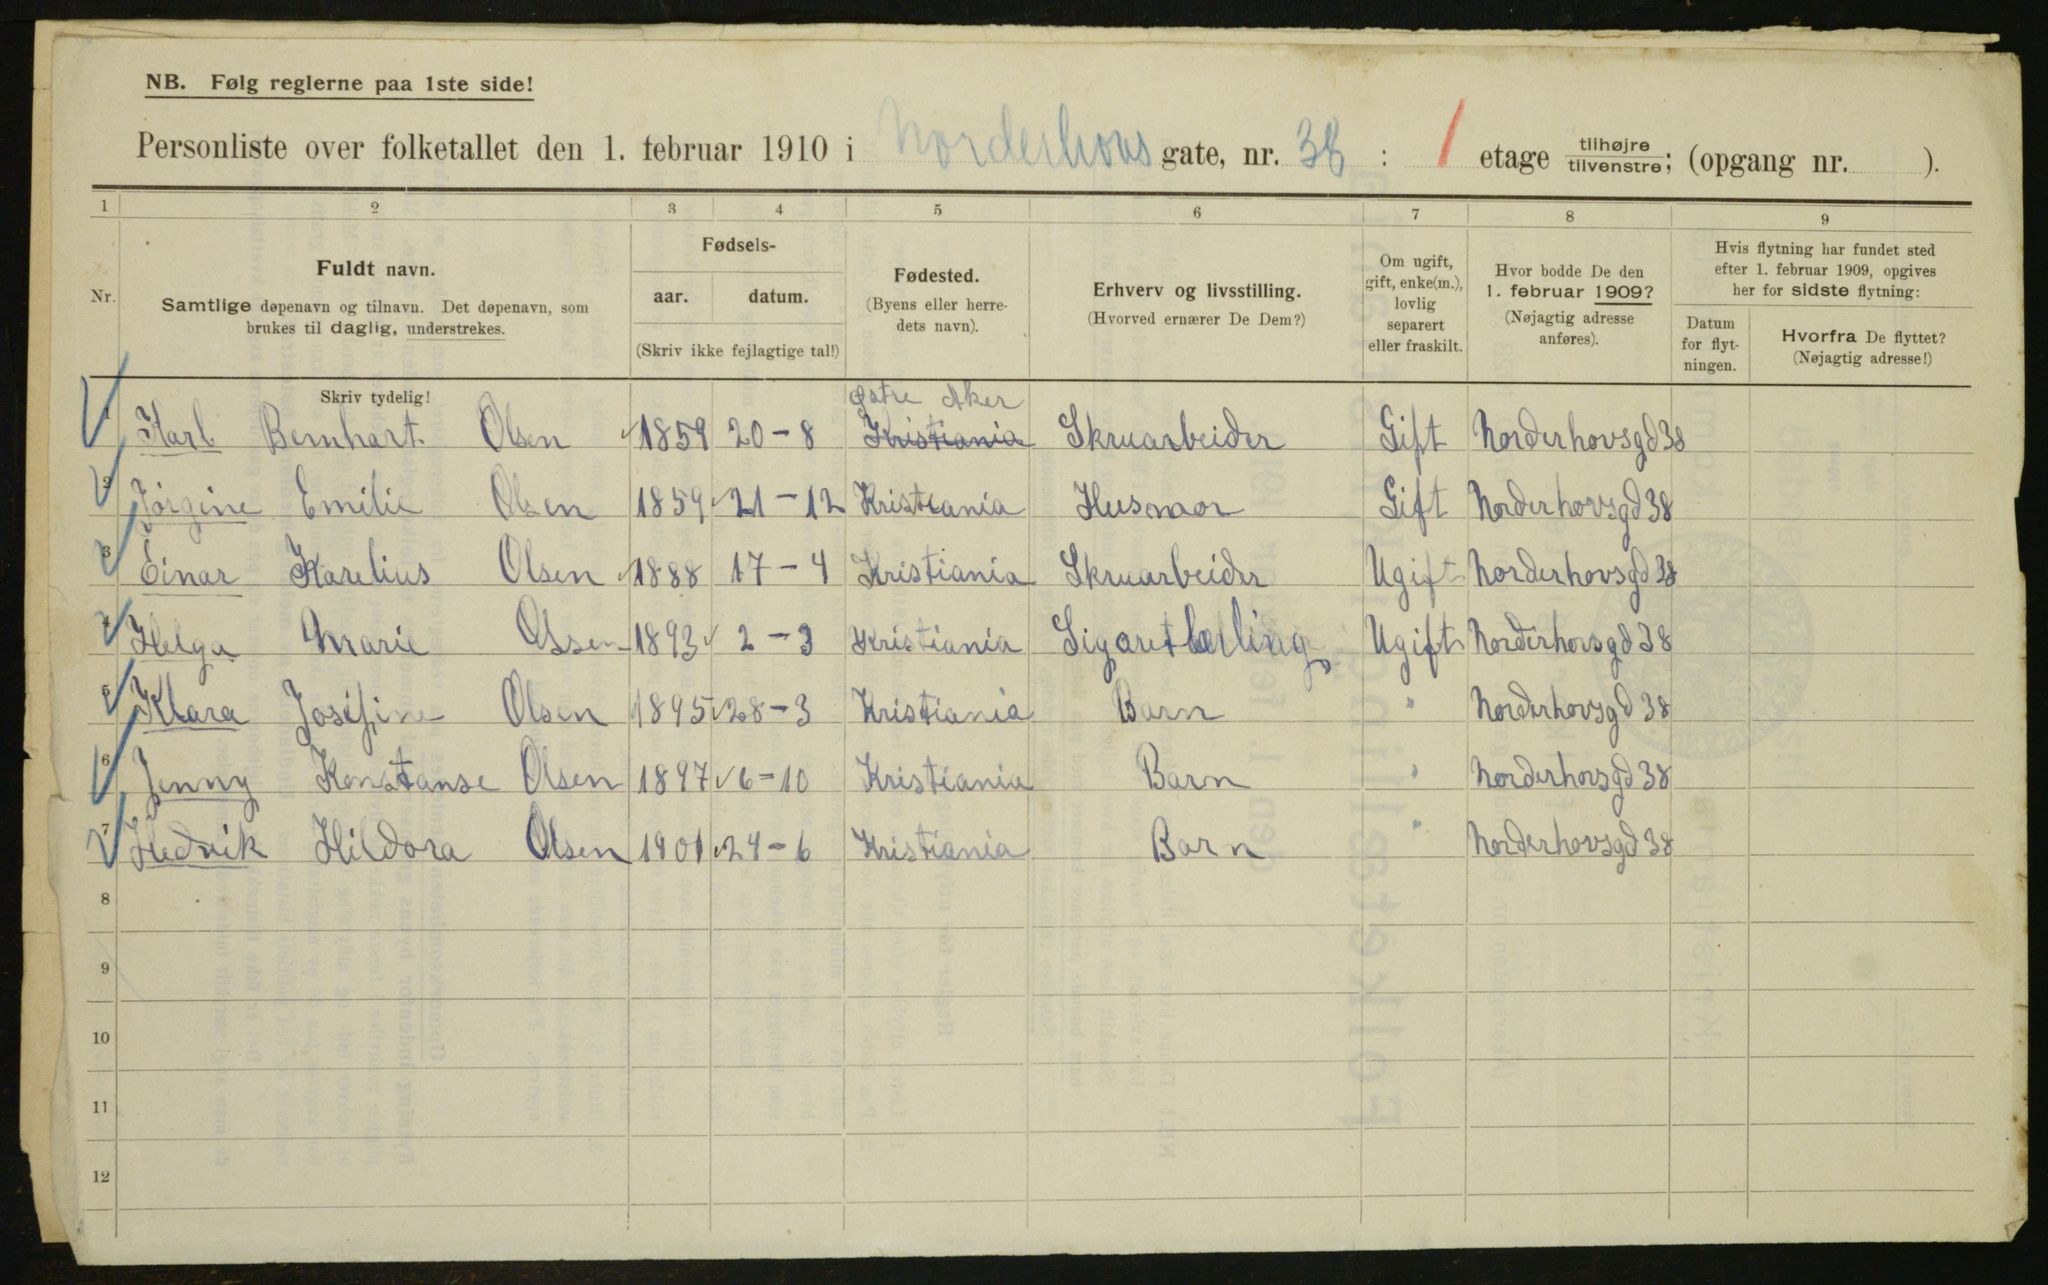 NB. Følg reglerne paa 1ste side!
Personliste over folketallet den 1. februar 1910 i Norderhovs gate, nr. 38 : 1 etage tilhøjre tilvenstre; (opgang nr. ).
1 2 3 4 5 6 7 8 9
Nr.
Fuldt navn.
Samtlige døpenavn og tilnavn. Det døpenavn, som
brukes til daglig, understrekes.
Fødsels-
aar. datum.
(Skriv ikke fejlagtige tal!)
Fødested.
(Byens eller herre-
dets navn).
Erhverv og livsstilling.
(Hvorved ernærer De Dem?)
Om ugift,
gift, enke(m.),
lovlig
separert
eller fraskilt.
Hvor bodde De den
1. februar 1909?
(Nøjagtig adresse
anføres).
Hvis flytning har fundet sted
efter 1. februar 1909, opgives
her for sidste flytning:
Datum
for flyt-
ningen.
Hvorfra De flyttet?
(Nøjagtig adresse!)
Skriv tydelig!
Østre Aker
1 Karl Bernhart Olsen 1859 20-8 Kristiania Skruarbeider Gift Norderhovsgd 38
2 Jørgine Emilie Olsen 1859 21-12 Kristiania Husmor Gift Norderhovsgd 38
3 Einar Karelius Olsen 1888 17-4 Kristiania Skruarbeider Ugift Norderhovsgd 38
4 Helga Marie Olsen 1893 2-3 Kristiania Sigaretlærling Ugift Norderhovsgd 38
5 Klara Josifine Olsen 1895 28-3 Kristiania Barn " Norderhovsgd 38
6 Jenny Konstanse Olsen 1897 6-10 Kristiania Barn " Norderhovsgd 38
7 Hedvik Hildora Olsen 1901 24-6 Kristiania Barn " Norderhovsgd 38
8
9
10
11
12